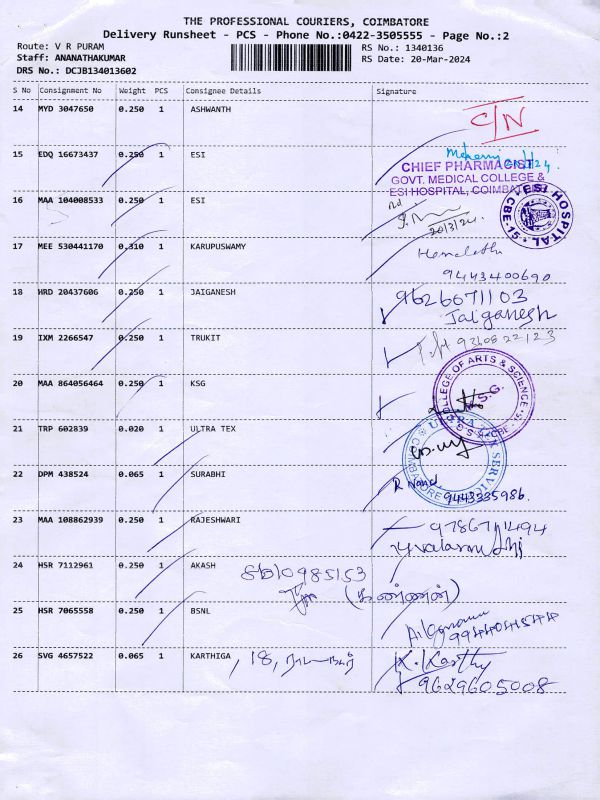 THE PROFESSIONAL COURIERS, COIMBATORE
Delivery Runsheet - PCS - Phone No.:0422-3505555 - Page No.:2
Route: V R PURAM
RS No.: 1340136
Staff: ANANATHAKUMAR
RS Date: 20-Mar-2024
DRS No.: DCJB134013602
S No Consignment No Weight PCS Consignee Details Signature
14 MYD 3047650 0.250 1 ASHWANTH C/N
15 EDQ 16673437 0.250 1 ESI
CHIEF PHARMACIST
GOVT. MEDICAL COLLEGE &
ESI HOSPITAL, COIMBATORE
16 MAA 104008533 0.250 1 ESI
20/3/24
ESI HOSPITAL
CBE-15.
17 MEE 530441170 0.310 1 KARUPUSWAMY
Hemalatha
9443400690
18 HRD 20437606 0.250 1 JAIGANESH 9626071103
Jaiganesh
19 IXM 2266547 0.250 1 TRUKIT 9360822123
20 MAA 864056464 0.250 1 KSG
COLLEGE OF ARTS & SCIENCE
K.S.G.
21 TRP 602839 0.020 1 ULTRA TEX
COIMBATORE
22 DPM 438524 0.065 1 SURABHI
9443335986.
23 MAA 108862939 0.250 1 RAJESHWARI 9786711494
24 HSR 7112961 0.250 1 AKASH 8310985153
(கண்ணன்)
25 HSR 7065558 0.250 1 BSNL
9944041544
26 SVG 4657522 0.065 1 KARTHIGA , 18, K. Karthy
9629605008